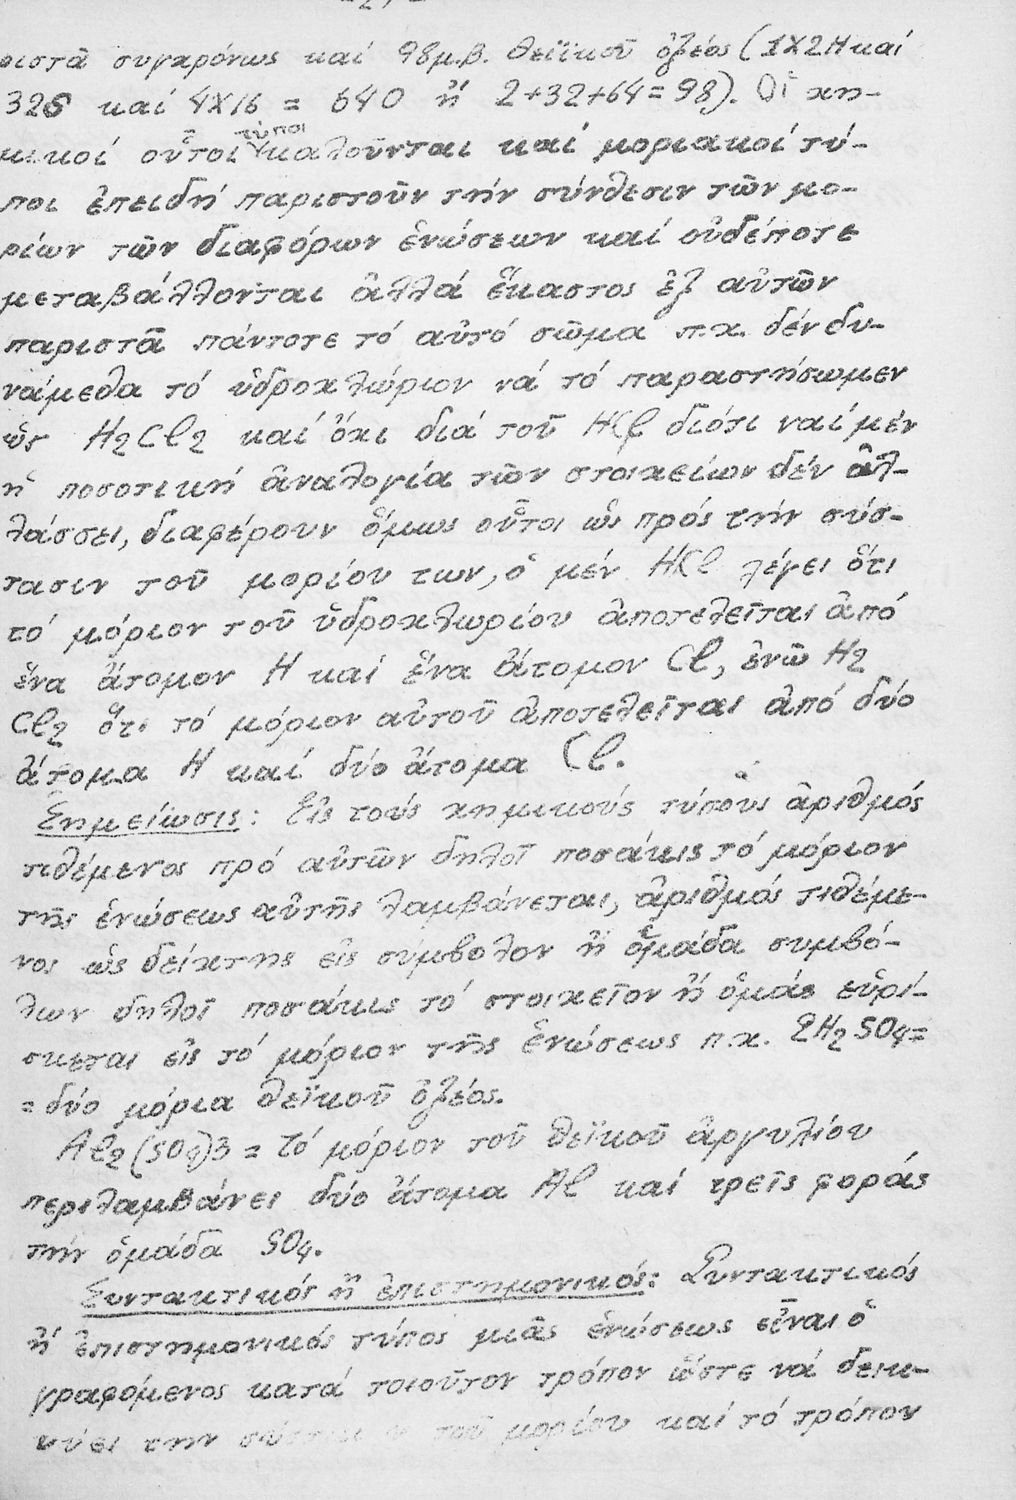 ριστᾶ συγχρόνως καί 98μ.β. θειϊκοῦ ὀξέος (1Χ2Η καί
32S καί 4Χ16 = 64Ο ἤ 2+32+64=98). Οἱ χη-
μικοί οὗτοι τύποι καλοῦνται καί μοριακοί τύ-
ποι ἐπειδή παριστοῦν τήν σύνθεσιν τῶν μο-
ρίων τῶν διαφόρων ἑνώσεων καί οὐδέποτε
μεταβάλλονται ἀλλά ἕκαστος ἐξ αὐτῶν
παριστᾶ πάντοτε τό αὐτό σῶμα π.χ. δέν δυ-
νάμεθα τό ὑδροχλώριον νά τό παραστήσωμεν
ὡς H2Cl2 καί ὄχι διά τοῦ HCl διότι ναί μέν
ἡ ποσοτική ἀναλογία τῶν στοιχείων δέν ἀλ-
λάσσει, διαφέρουν ὅμως οὗτοι ὡς πρός τήν σύσ-
τασιν τοῦ μορίου των, ὁ μέν HCl λέγει ὅτι
τό μόριον τοῦ ὑδροχλωρίου ἀποτελεῖται ἀπό
ἕνα ἄτομον H καί ἕνα ἄτομον Cl, ἐνῶ H2
Cl2 ὅτι τό μόριον αὐτοῦ ἀποτελεῖται ἀπό δύο
ἄτομα H καί δύο ἄτομα Cl.
Σημείωσις: Εἰς τούς χημικούς τύπους ἀριθμός
τιθέμενος πρό αὐτῶν δηλοῖ ποσάκις τό μόριον
τῆς ἑνώσεως αὐτῆς λαμβάνεται, ἀριθμός τιθέμε-
νος ὡς δείκτης εἰς σύμβολον ἤ ὁμάδα συμβό-
λων δηλοῖ ποσάκις τό στοιχεῖον ἤ ὁμάς εὑρί-
σκεται εἰς τό μόριον τῆς ἑνώσεως π.χ. 2H2SO4=
=δύο μόρια θειϊκοῦ ὀξέος.
Al2(SO4)3 = τό μόριον τοῦ θειϊκοῦ ἀργυλίου
περιλαμβάνει δύο ἄτομα Al καί τρεῖς φοράς
τήν ὁμάδα SO4.
Συντακτικός ἤ ἐπιστημονικός: Συντακτικός
ἤ ἐπιστημονικός τύπος μιᾶς ἑνώσεως εἶναι ὁ
γραφόμενος κατά τοιοῦτον τρόπον ὥστε νά δεικ-
νύει την τοῦ μορίου καί τό τρόπον